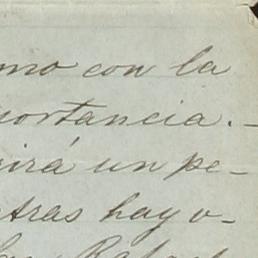 mo con la
portancia. —
irá un pe-
tras hay o-